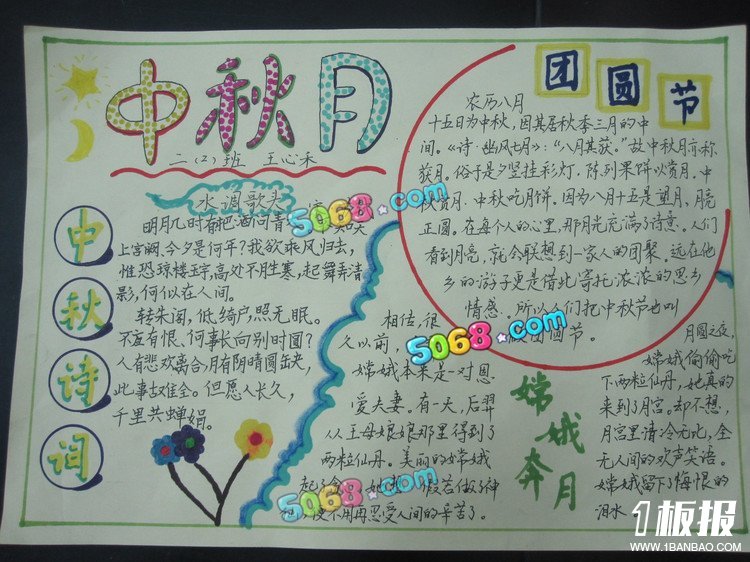 中秋月
二(2)班 王心禾
团圆节
农历八月
十五日为中秋,因其居秋季三月的中
间。《诗·幽风七月》:"八月其获。"故中秋月亦称
获月。俗于是夕竖挂彩灯,陈列果饼以赏月。中
秋赏月、中秋吃月饼。因为八月十五是望月,月亮
正圆。在每个人的心里,那月光充满了诗意。人们
看到月亮,就会联想到一家人的团聚。远在他
乡的游子更是借此寄托浓浓的思乡
情感。所以人们把中秋节也叫
团圆节。
中秋诗词
水调歌头
明月几时有把酒问青
上宫阙、今夕是何年?我欲乘风归去,
惟恐琼楼玉宇,高处不胜寒,起舞弄清
影,何似在人间。
转朱阁,低绮户,照无眠。
不应有恨、何事长向别时圆?
人有悲欢离合,月有阴晴圆缺,
此事古难全。但愿人长久,
千里共蝉娟。
嫦娥奔月
相传,很
久以前,
嫦娥本来是一对恩
爱夫妻。有一天,后羿
从王母娘娘那里得到了
两粒仙丹。美丽的嫦娥
起了
假若做了神
仙,便不用再忍受人间的辛苦了。
月圆之夜,
嫦娥偷偷吃
下两粒仙丹,她真的
来到了月宫。却不想,
月宫里清冷无比,全
无人间的欢声笑语。
嫦娥留下了悔恨的
泪水
5068.com
5068.com
5068.com
5068.com
1板报
WWW.1BANBAO.COM